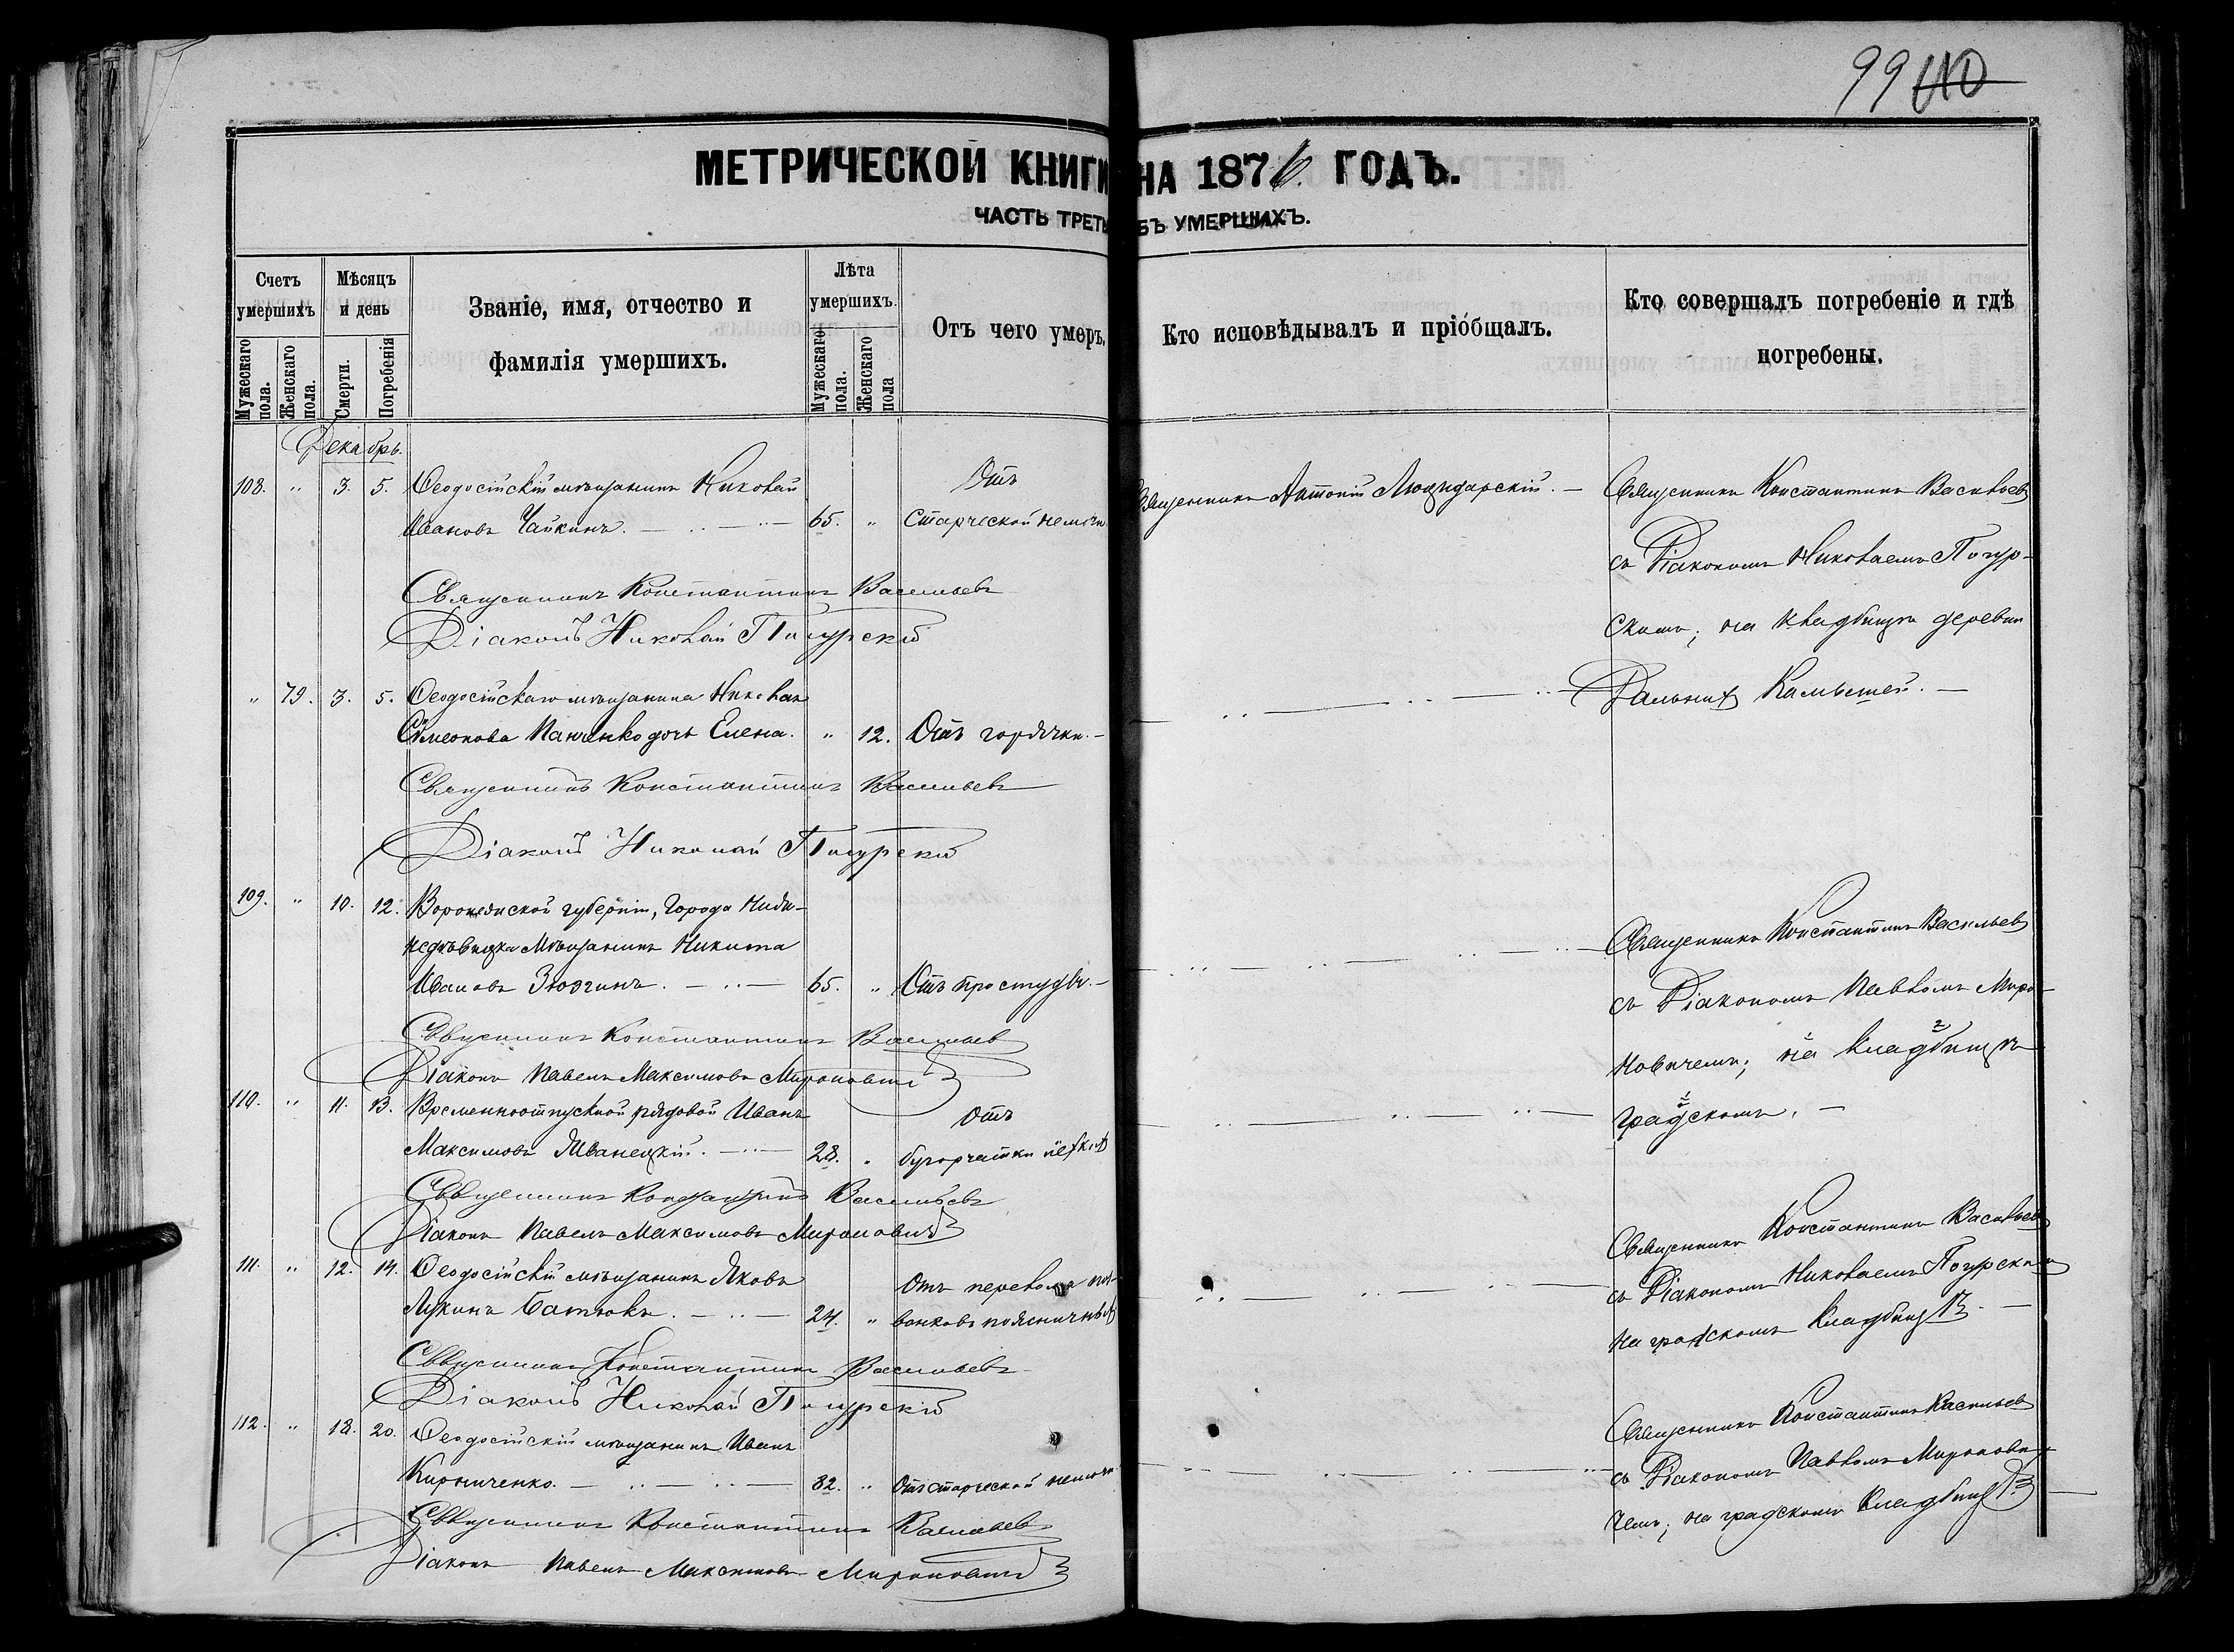 99 110
МЕТРИЧЕСКОЙ КНИГИ НА 1876. ГОДЪ.
ЧАСТЬ ТРЕТЬ БЪ УМЕРШИХЪ.
Счетъ умершихъ
Мужескаго пола.
Женскаго пола.
Мѣсяцъ и день
Смерти.
Погребенія
Званіе, имя, отчество и
фамилія умершихъ.
Лѣта умершихъ.
Мужескаго пола.
Женскаго пола
Отъ чего умеръ.
Кто исповѣдывалъ и пріобщалъ.
Кто совершалъ погребеніе и гдѣ
погребены.
Декабрь.
108. " 3. 5. Ѳеодосійскій мѣщанинъ Николай
Ивановъ Чайкинъ. 65. " Отъ
старческой немочи
Священникъ Константинъ Васильевъ
Діаконъ Николай Погурскій
Священникъ Антоній
Священникъ Константинъ Васильевъ
съ Діакономъ Николаемъ Погур-
скимъ; на кладбищѣ деревни
Дальнихъ Камышей.
" 79. 3. 5. Ѳеодосійскаго мѣщанина Николая
Симеонова Панченко дочь Елена. " 12. Отъ горячки.
Священникъ Константинъ Васильевъ
Діаконъ Николай Погурскій
109. " 10. 12. Воронежской губерніи, города Нижн-
недѣвицка мѣщанинъ Никита
Ивановъ Зюзгинъ. 65. " Отъ простуды.
Священникъ Константинъ Васильевъ
Діаконъ Павелъ Максимовъ Мироновичъ
Священникъ Константинъ Васильевъ
съ Діакономъ Павломъ Миро-
новичемъ; на кладбищѣ
градскомъ.
110. " 11. 13. Временноотпускной рядовой Иванъ
Максимовъ Иванецкій. 28. " Отъ
бугорчатки легкихъ
Священникъ Константинъ Васильевъ
Діаконъ Павелъ Максимовъ Мироновичъ
111. " 12. 14. Ѳеодосійскій мѣщанинъ Яковъ
Лукинъ Батюкъ. 24. " Отъ перелома поз-
вонковъ поясничныхъ
Священникъ Константинъ Васильевъ
Діаконъ Николай Погурскій
Священникъ Константинъ Васильевъ
съ Діакономъ Николаемъ Погурскимъ
на градскомъ кладбищѣ.
112. " 18. 20. Ѳеодосійскій мѣщанинъ Иванъ
Кирниченко. 82. " Отъ старческой немочи
Священникъ Константинъ Васильевъ
Діаконъ Павелъ Максимовъ Мироновичъ
Священникъ Константинъ Васильевъ
съ Діакономъ Павломъ Миронови-
чемъ; на градскомъ кладбищѣ